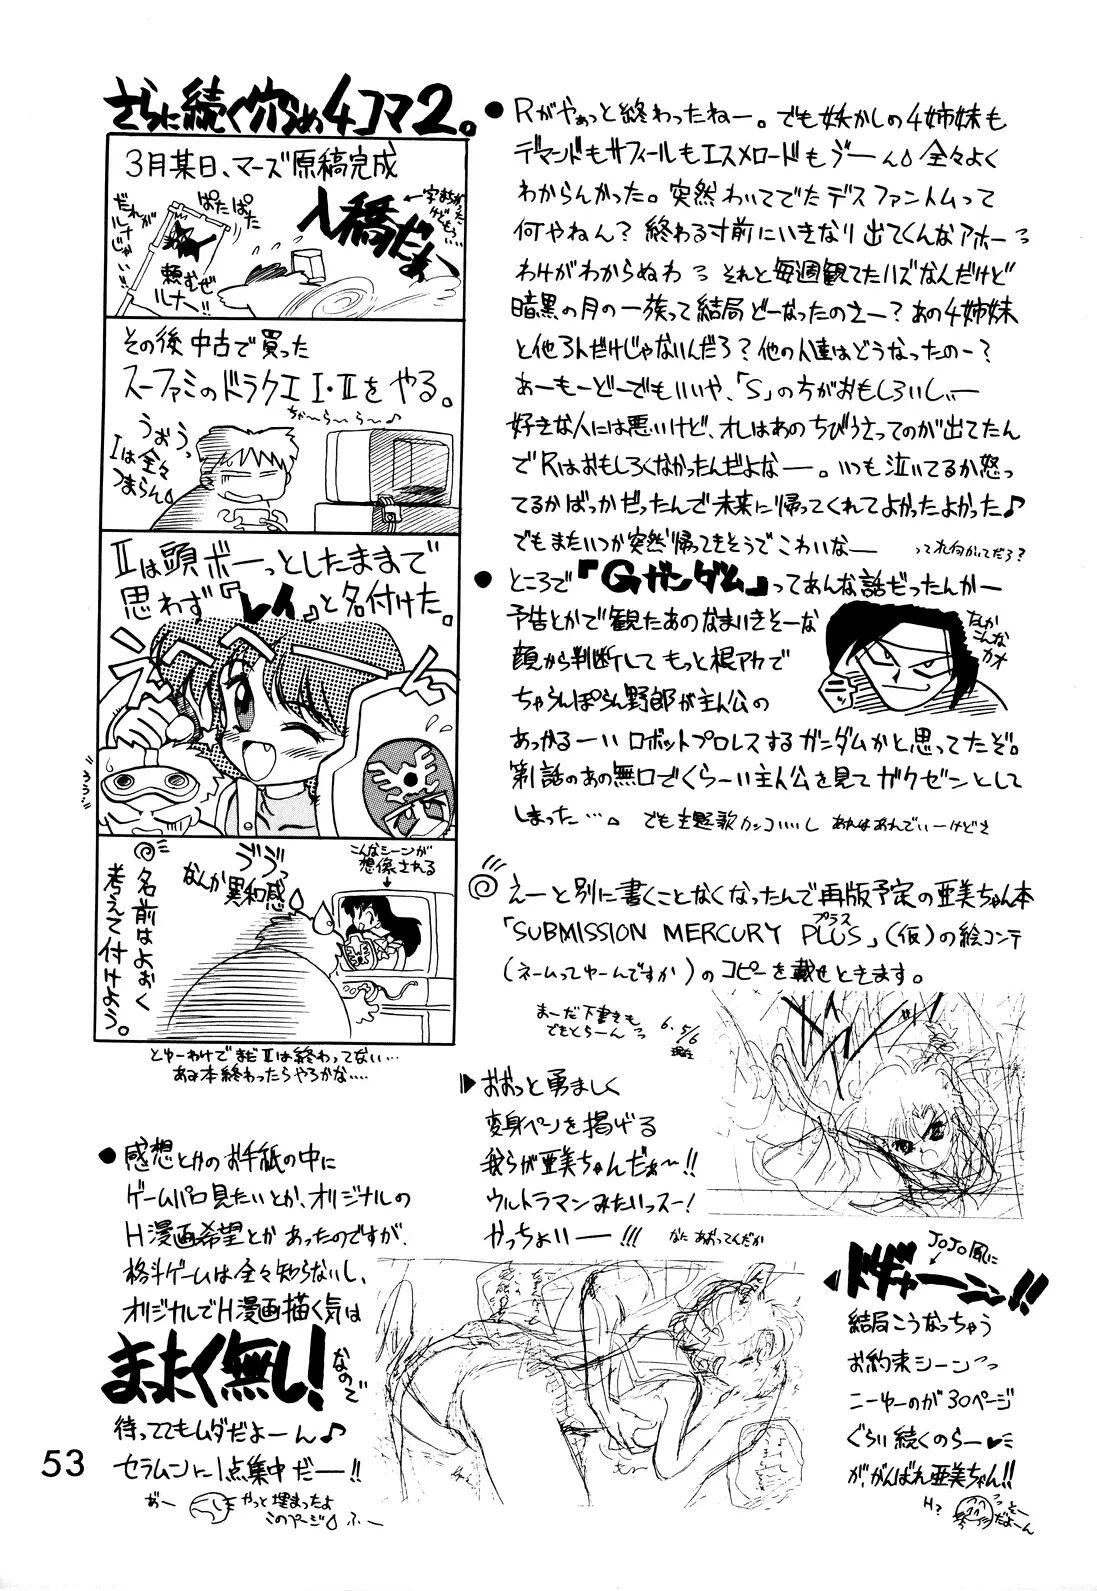 さらに続く穴うめ4コマ2。
3月某日、マーズ原稿完成
入稿だぁ
ぱたぱた
だれが
ルナじゃい!!
頼むぜ
ルナー!!
その後 中古で買った
スーファミのドラクエ I・IIをやる。
ちゃ〜ら〜ら〜♪
うおぅっ
Iは全々
つまらん
IIは頭ボーっとしたままで
思わず『レイ』と名付けた。
こんなシーンが
想像される
ゔゔっ
なんか異和感
◎名前はよぉく
考えて付けよう。
とゆーわけで まだIIは終わってない…
あみ本終わったらやろかな….
●感想とかのお手紙の中に
ゲームパロ見たいとか、オリジナルの
H漫画希望とかあったのですが、
格斗ゲームは全々知らないし、
オリジナルでH漫画描く気は
まったく無し!なので
待っててもムダだよーん♪
セラムンに1点集中だー!!
おー
やっと埋まったよ
このページ
ふー
53
●Rがやぁっと終わったねー。でも妖かしの4姉妹も
デマンドもサフィールもエスメロードもゔーん 全々よく
わからんかった。突然わいてでたデスファントムって
何やねん?終わる寸前にいきなり出てくんなアホーっ
わけがわからぬわっ それと毎週観てたハズなんだけど
暗黒の月の一族って結局どーなったのさー?あの4姉妹
と他3人だけじゃないんだろ?他の人達はどうなったのー?
あーもーどーでもいいや、「S」の方がおもしろいしぃー
好きな人には悪いけど、オレはあのちびうさってのが出てたん
でRはおもしろくなかったんだよなー。いつも泣いてるか怒っ
てるかばっかだったんで未来に帰ってくれてよかったよかった♪
でもまたいつか突然帰ってきそうでこわいなー
って何がってだろ?
●ところで『Gガンダム』ってあんな話だったんかー
予告とかで観たあのなまいきそーな
顔から判断してもっと根アカで
ちゃらんぽらん野郎が主人公の
あっかるーいロボットプロレスするガンダムかと思ってたぞ。
第1話のあの無口でくらーい主人公を見てガクゼンとして
しまった…。でも主題歌カッコいいし
なんか
こんな
カオ
◎えーと別に書くことなくなったんで再版予定の亜美ちゃん本
「SUBMISSION MERCURY PLUS」(仮)の絵コンテ
プラス
(ネームってゆーんですか)のコピーを載せときます。
まーだ下書きも
できとらーんっ
6.5/6
現在
▶おおっと勇ましく
変身ペンを掲げる
我らが亜美ちゃんだぁ〜!!
ウルトラマンみたいっスー!
かっちょいー!!!
なにあおってんだか
JoJo風に
ドギャーーン!!
結局こうなっちゃう
お約束シーンっ
こーゆーのが30ページ
ぐらい続くのらー♥
が、がんばれ亜美ちゃん!!
H?
そー
だよーん